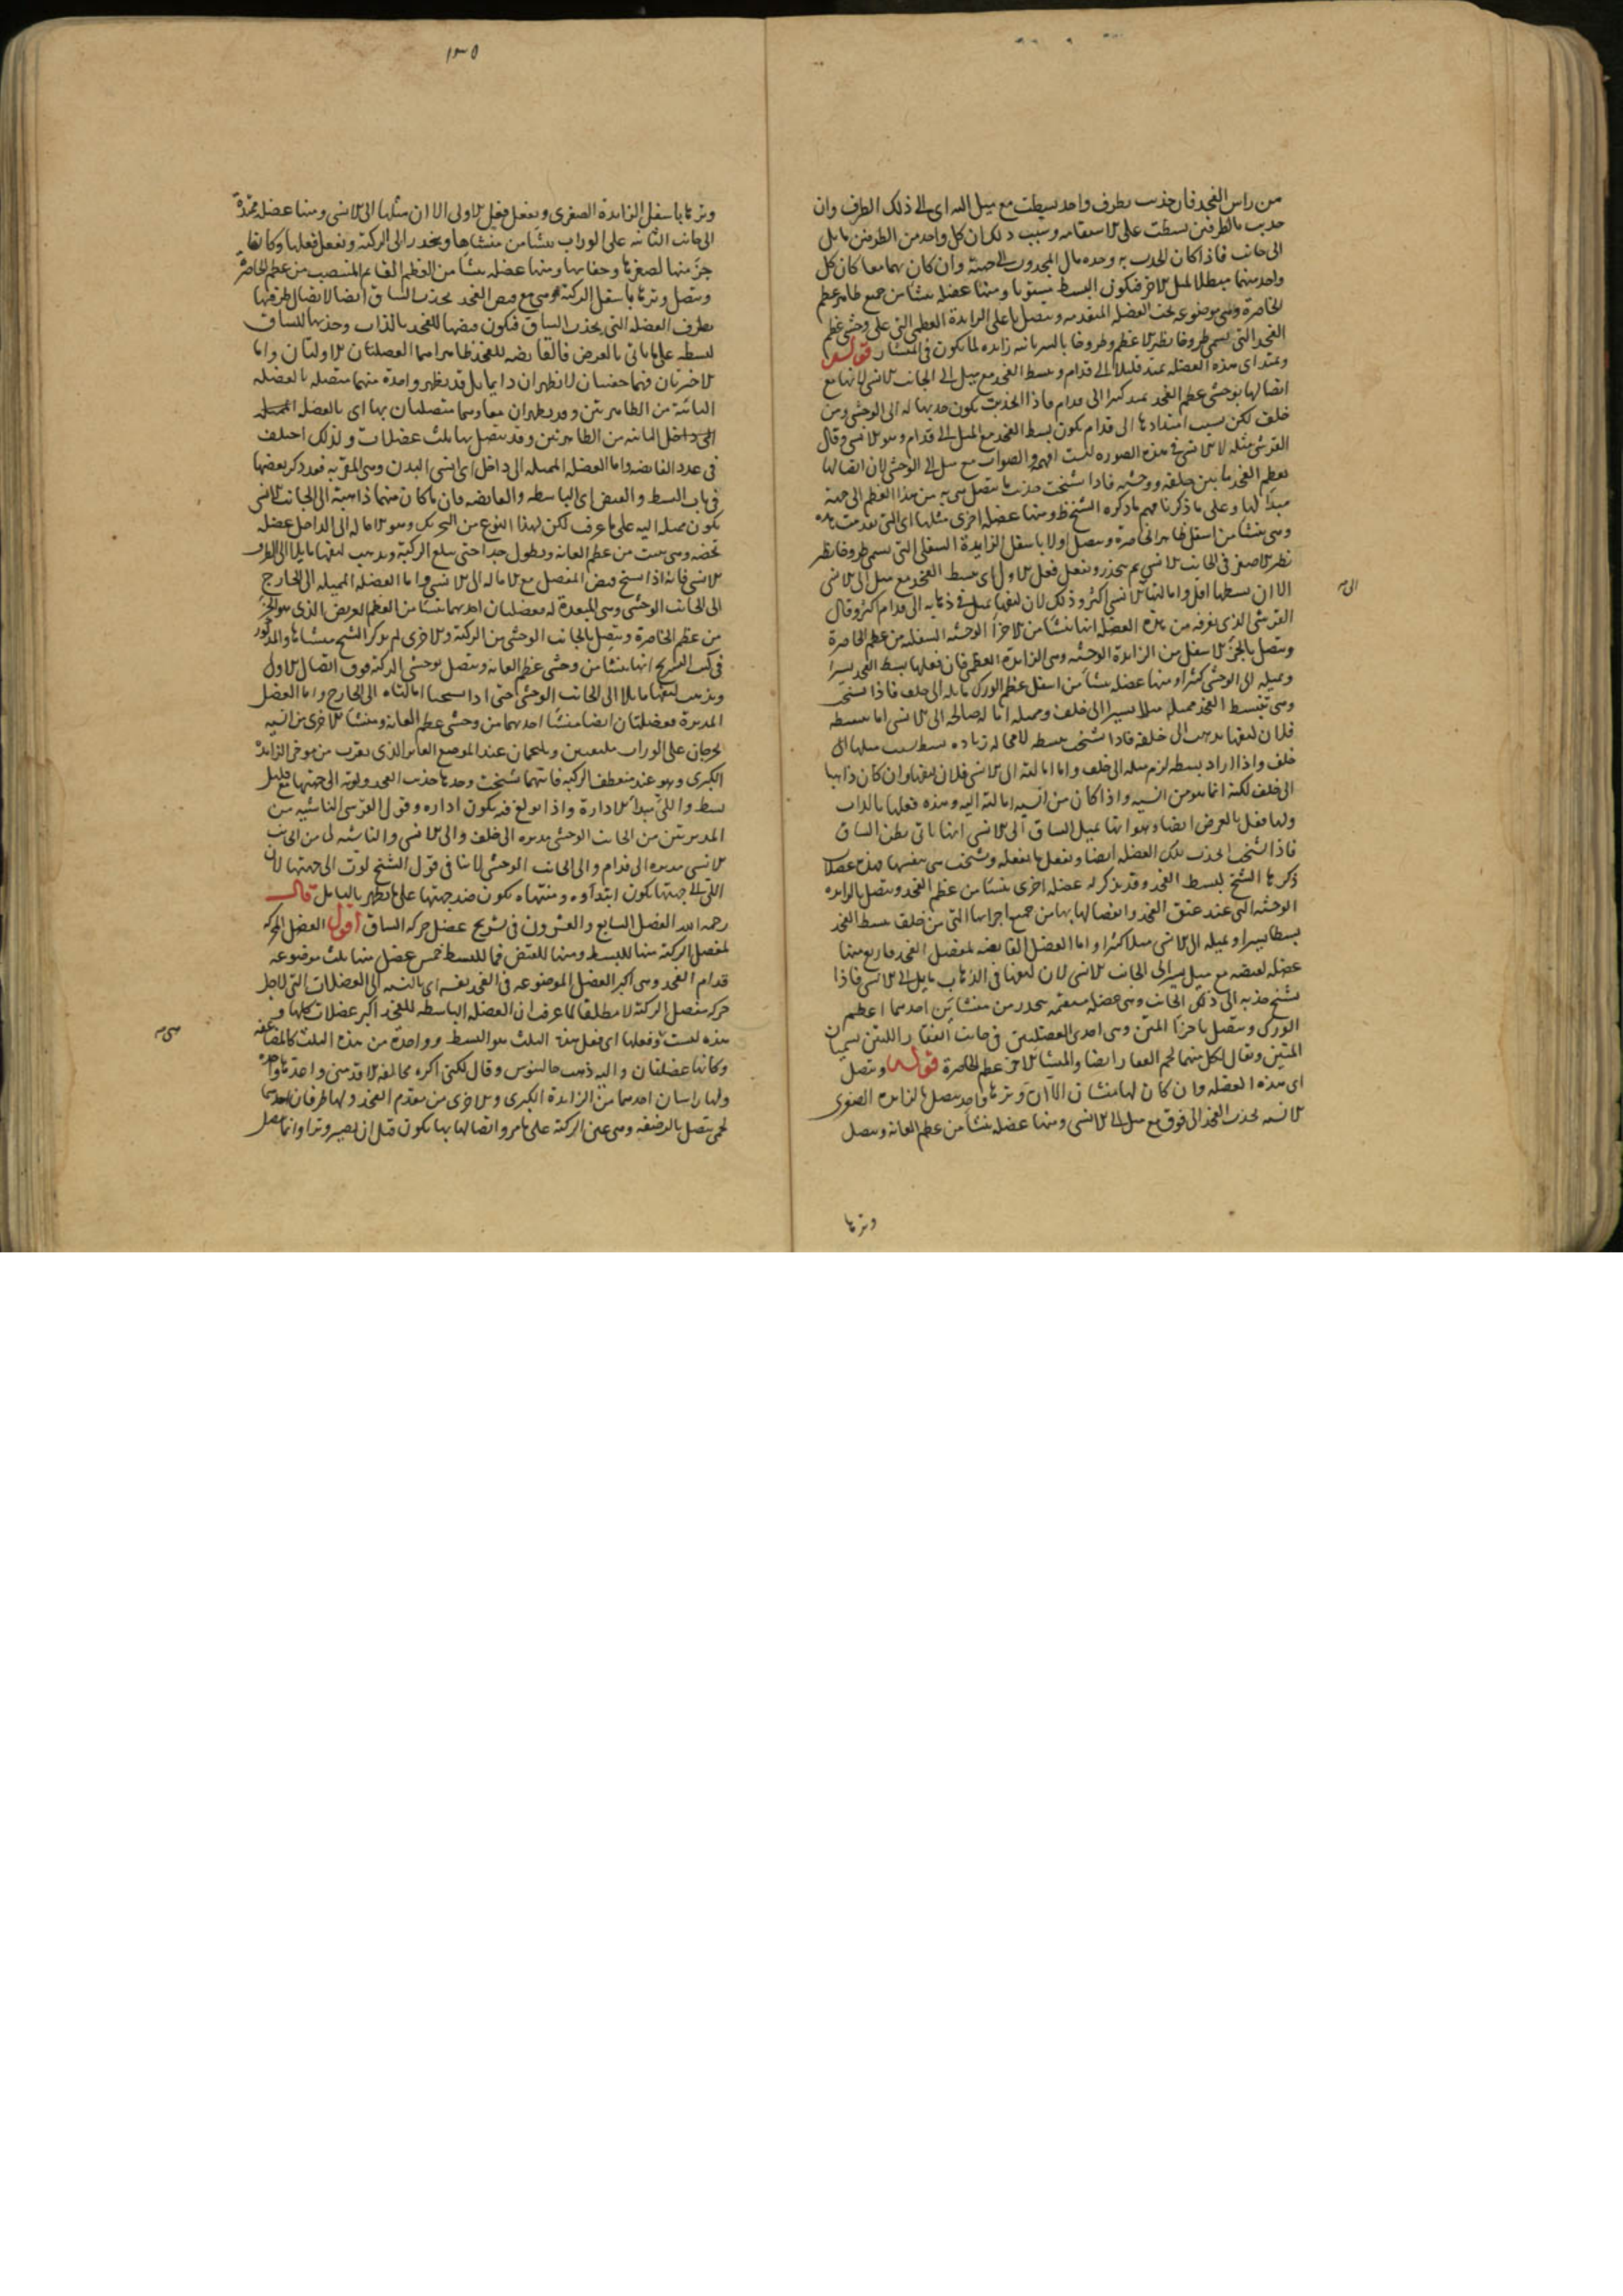 من راس الفخذ فان جذبت بطرف واحد بسطت مع ميل اليه اى الى ذلك الطرف وان
جذبت بالطرفين بسطت على الاستقامه وسبب ذلك ان كل واحد من الطرفين مايل
الى جانب فاذا كان الجذب به وحده مال المجذوب الى جهته وان كان بهما معا كان كل
واحد منهما مبطلا لميل الاخر فيكون البسط مستويا ومنها عضله تنشأ من جميع ظاهر عظم
الخاصرة وهى موضوعه تحت العضلة المتقدمه وتتصل باعلى الزايدة العظمى التى على وحشى عظم
الفخذ التى تسمى طروخانطير الاعظم وطروخا بالسريانيه زايده لما يكون فى المنشار قوله
وتمتد اى هذه العضله تمتد قليلا الى قدام وتبسط الفخذ مع ميل الى الجانب الانسى لانها مع
اتصالها بوحشى عظم الفخذ تمتد كثيرا الى قدام فاذا جذبت يكون جذبها له الى الوحشى ومن
خلف لكن بسبب امتدادها الى قدام يكون بسط الفخذ مع الميل الى قدام وهو الانسى وقال
القرشى مثله الا الانسى فى هذه الصوره لست افهمه والصواب مع ميل الى الوحشى لان اتصالها
بعظم الفخذ ما بين خلفه ووحشيه فاذا تشنجت جذبت ما تتصل هى به من هذا العظم الى جهة
مبدأ لها وعلى ما ذكرنا فهم ما ذكره الشيخ ظ ومنها عضله اخرى مثلها اى التى تقدمت هذه
وهى تنشأ من اسفل ظاهر الخاصرة وتتصل اولا باسفل الزايدة السفلى التى تسمى طروخانطير
نطير الاصغر فى الجانب الانسى ثم تنحدر وتفعل فعل الاول اى تبسط الفخذ مع ميل الى الانسى
الا ان بسطها اقل وامالتها الانسى اكثر وذلك لان ليفها يميل فى ذهابه الى قدام اكثر وقال
القرشى الذى نعرفه من هذه العضله انها تنشأ من الاجزأ الوحشيه السفليه من عظم الخاصرة
وتتصل بالجزء الاسفل من الزايدة الوحشيه وهى الزايدة العظمى فان فعلها بسط الفخذ يسيرا
وتميله الى الوحشى كثيرا ومنها عضله تنشأ من اسفل عظم الورك مايله الى خلف فاذا تشنجت
وهى تبسط الفخذ مميلة ميلا يسيرا الى خلف ومميله امالة صالحه الى الانسى اما تبسطه
فلان ليفها يذهب الى خلفه فاذا تشنجت بسطه لا محالة زياده بسط بسبب ميلها الى
خلف واذا زاد بسطه لزم ميله الى خلف واما امالته الى الانسى فلان ليفها وان كان ذاهبا
الى خلف لكنه انما هو من انسيه واذا كان من انسيه امالته اليه وهذه فعلها بالذات
ولها فعل بالعرض ايضا وهو انها تميل الساق الى الانسى انها تاتى بطن الساق
فاذا تشنجت انجذبت تلك العضله ايضا وتفعل ما تفعله وتشنجت هى بنفسها فهذه عضلات
ذكرها الشيخ لبسط الفخذ وقد يذكر له عضله اخرى تنشأ من عظم الفخذ وتتصل بالزايده
الوحشيه التى عند عنق الفخذ واتصالها بها من جميع اجزائها التى من خلف تبسط الفخذ
بسطا يسيرا وتميله الى الانسى ميلا كثيرا واما العضل القابضه لمفصل الفخذ فاربع منها
عضله تقبضه مع ميل يسير الى الجانب الانسى لان ليفها فى الذهاب مايل الى الانسى فاذا
تشنج جذبه الى ذلك الجانب وهى عضله مستقيمه تنحدر من منشأين احدهما اعظم
الورك ويتصل باجزا المتن وهى احدى العضلتين فى جانب الفقار اللتين تسميان
المتنين ويقال لكل منهما لحم الفقار ايضا والمنشأ الاخر عظم الخاصرة قوله وتتصل
اى هذه العضله وان كان لها منشان الا ان وترها واحد يتصل بالزايده الصغرى
الانسيه تجذب الفخذ الى فوق مع ميل الى الانسى ومنها عضله تنشأ من عظم العانه وتتصل
وترها
الى
١٣٥
وترها باسفل الزايدة الصغرى وتفعل فعل الاولى الا ان مثلها الى الانسى ومنها عضله ممتدة
الى جانب الثانيه على الوراب تنشأ من منشاها وتنحدر الى الركبة وتفعل فعلها وكانها
جزء منها لصغرها وخفايها ومنها عضله تنشأ من العظم القايم المنتصب من عظم الخاصرة
وتتصل وترها باسفل الركبة وهى مع قبض الفخذ تجذب الساق ايضا لاتصال طرفها
بطرف العضله التى تجذب الساق فيكون قبضها للفخذ بالذات وجذبها للساق
لبسطه على ما ياتى بالعرض فالقابضه للفخذ ظاهرا هما العضلتان الاوليتان واما
الاخريان فهما خفيتان لا تظهران دايما بل قد يظهر واحدة منهما متصله بالعضله
الثانية من الظاهرتين وقد يظهران معا وهما متصلتان بها اى بالعضل
الى داخل الثانيه من الظاهرتين وقد يتصل بها ثلث عضلات ولذلك اختلف
فى عدد القابضه واما العضله المميله الى داخل اى انسى البدن وهى المقربه فقد ذكر بعضها
فى باب البسط والقبض اى الباسطه والقابضه فان ما كان منهما ذاهبة الى الجانب الانسى
يكون مميله اليه على ما عرف لكن لهذا النوع من التحريك وهو الاماله الى الداخل عضله
تخصه وهى تنبت من عظم العانه وتطول جدا حتى تبلغ الركبة ويذهب ليفها مايلا الى الطرف
الانسى فانه اذا تشنج قبض المفصل مع الاماله الى الانسى واما العضله المميله الى الخارج
الى الجانب الوحشى وهى المبعدة له فعضلتان احديهما تنشأ من العظم العريض الذى هو الجزء
من عظم الخاصرة ويتصل بالجانب الوحشى من الركبة والاخرى لم يذكر الشيخ منشاها والمذكور
فى كتب التشريح انها تنشأ من وحشى عظم العانه وتتصل بوحشى الركبة فوق اتصال الاول
ويذهب ليفها مايلا الى الجانب الوحشى حتى اذا تشنجتا امالتاه الى الخارج واما العضل
المديرة فعضلتان ايضا منشأ احديهما من وحشى عظم العانه ومنشأ الاخرى من انسيه
تخرجان على الوراب ملتفين ويلتحمان عند الموضع الغاير الذى بقرب من موخر الزايدة
الكبرى وهو عند منعطف الركبه فايتهما تشنجت وحدها جذبت الفخذ ولوته الى جهتها مع قليل
بسط واللى مبدأ الادارة واذا بولغ فيه يكون اداره وقول القرشى الناشيه من
المديرتين من الجانب الوحشى مديره الى خلف والى الانسى والناشيه من الجانب
الانسى مديره الى قدام والى الجانب الوحشى لا ينافى قول الشيخ لوت الى جهتها لان
اللى الى جهتها يكون ابتداؤه ومنتهاه يكون ضد جهتها على ما يظهر بالتامل قال
رحمه الله الفصل السابع والعشرون فى تشريح عضل حركه الساق اقول العضل المحركه
لمفصل الركبة منها للبسط ومنها للقبض فما للبسط خمس عضل منها ثلث موضوعه
قدام الفخذ وهى اكبر العضل الموضوعه فى الفخذ نفسه اى بالنسبه الى العضلات التى لاجل
حركه مفصل الركبة لا مطلقا لما عرفت ان العضله الباسطه للفخذ اكبر عضلات كلها و
هذه ليست وفعلها اى فعل هذه الثلث هو البسط وواحدة من هذه الثلث كالمضاعفه
وكانها عضلتان واليه ذهب جالينوس وقال لكنى اكره مخالفه الاقدمين واحدة
ولها راسان احدهما من الزايدة الكبرى والاخرى من مقدم الفخذ ولها طرفان احدهما
لحمى يتصل بالرضفه وهى عين الركبة على ما مر واتصالها بها يكون قبل ان يصير وترا وانما يتصل
هى